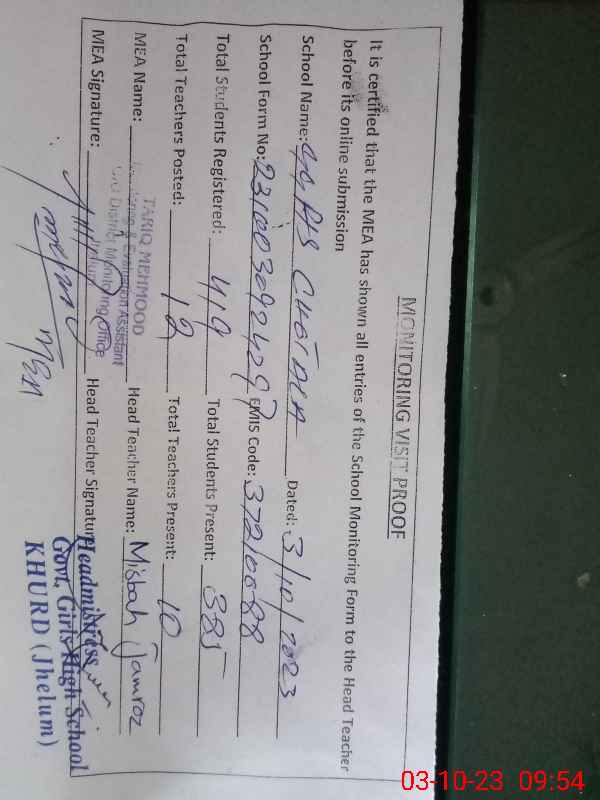 MONITORING VISIT PROOF
It is certified that the MEA has shown all entries of the School Monitoring Form to the Head Teacher
before its online submission
School Name: Dated: 3/10/2023
School Form No: EMIS Code: 37210088
Total Students Registered: 419 Total Students Present: 385
Total Teachers Posted: 12 Total Teachers Present: 10
MEA Name: Head Teacher Name: Misbah Jamroz
TARIQ MEHMOOD
Monitoring & Evaluation Assistant
District Monitoring Office
Jhelum
MEA Signature: Head Teacher Signature
MEA
Headmistress
Govt. Girls High School
KHURD (Jhelum)
03-10-23 09:54